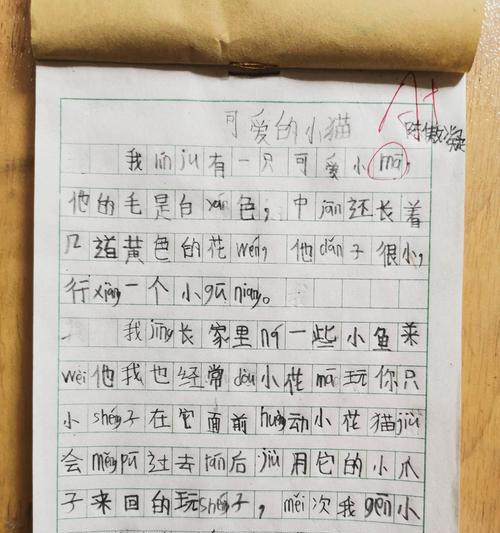 可爱的小猫
A+
陈傲凝
我lín jū有一只可爱小māo,
他的毛是白yán色,中jān还长着
几道黄色的花wén,他dǎn子很小,
行xiàng一个小gū niang。
我jīng长家里ná一些小鱼来
wèi他我也经常dòu小花māo玩你只
小shéng子在它面前huàng动小花猫jiù
会měng pū过去rán后jiù用它的小爪
子来回的玩shéng子,měi次我gēn小